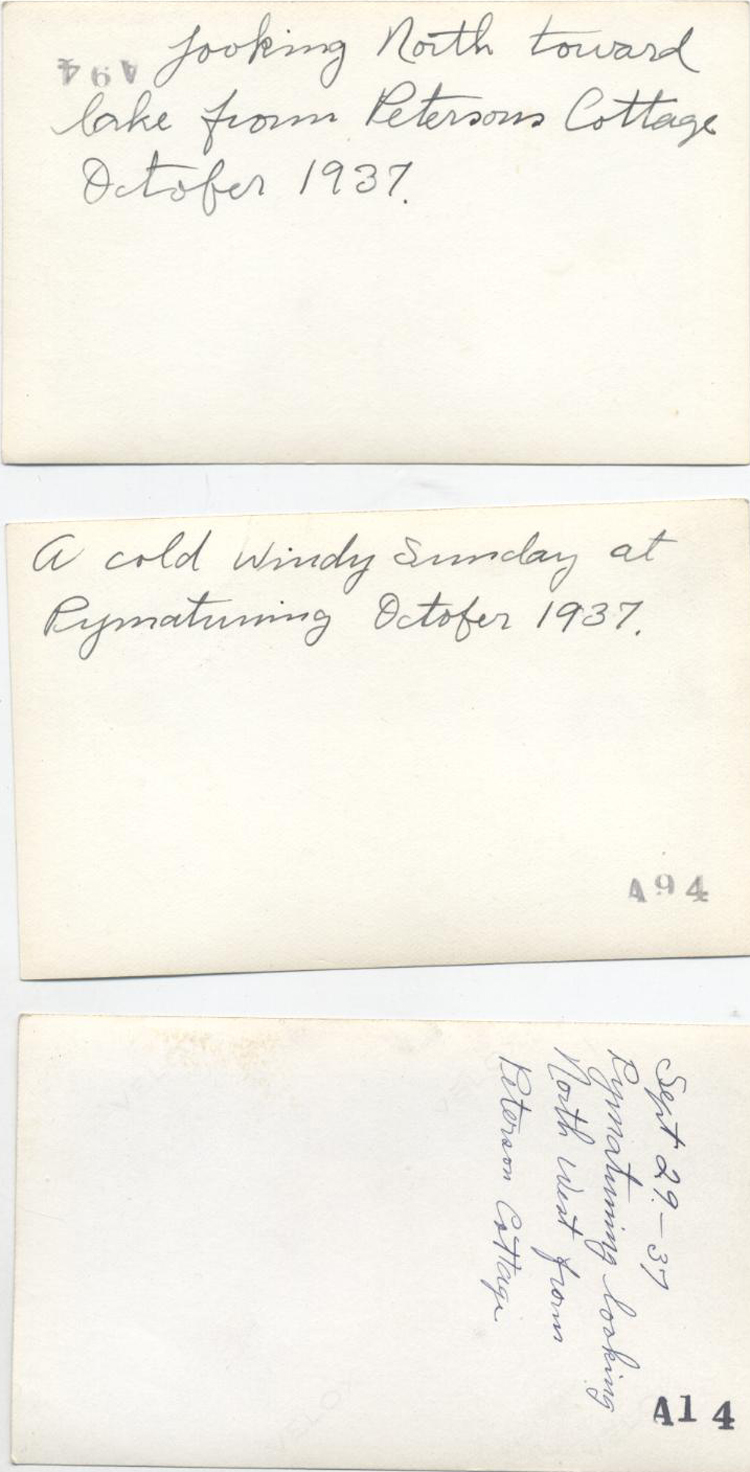 A94
Looking North toward
lake from Petersons Cottage
October 1937.
A cold windy Sunday at
Pymatuning October 1937.
A94
Sept 29-37
Pymatuning looking
North West from
Peterson Cottage
A14
VELOX